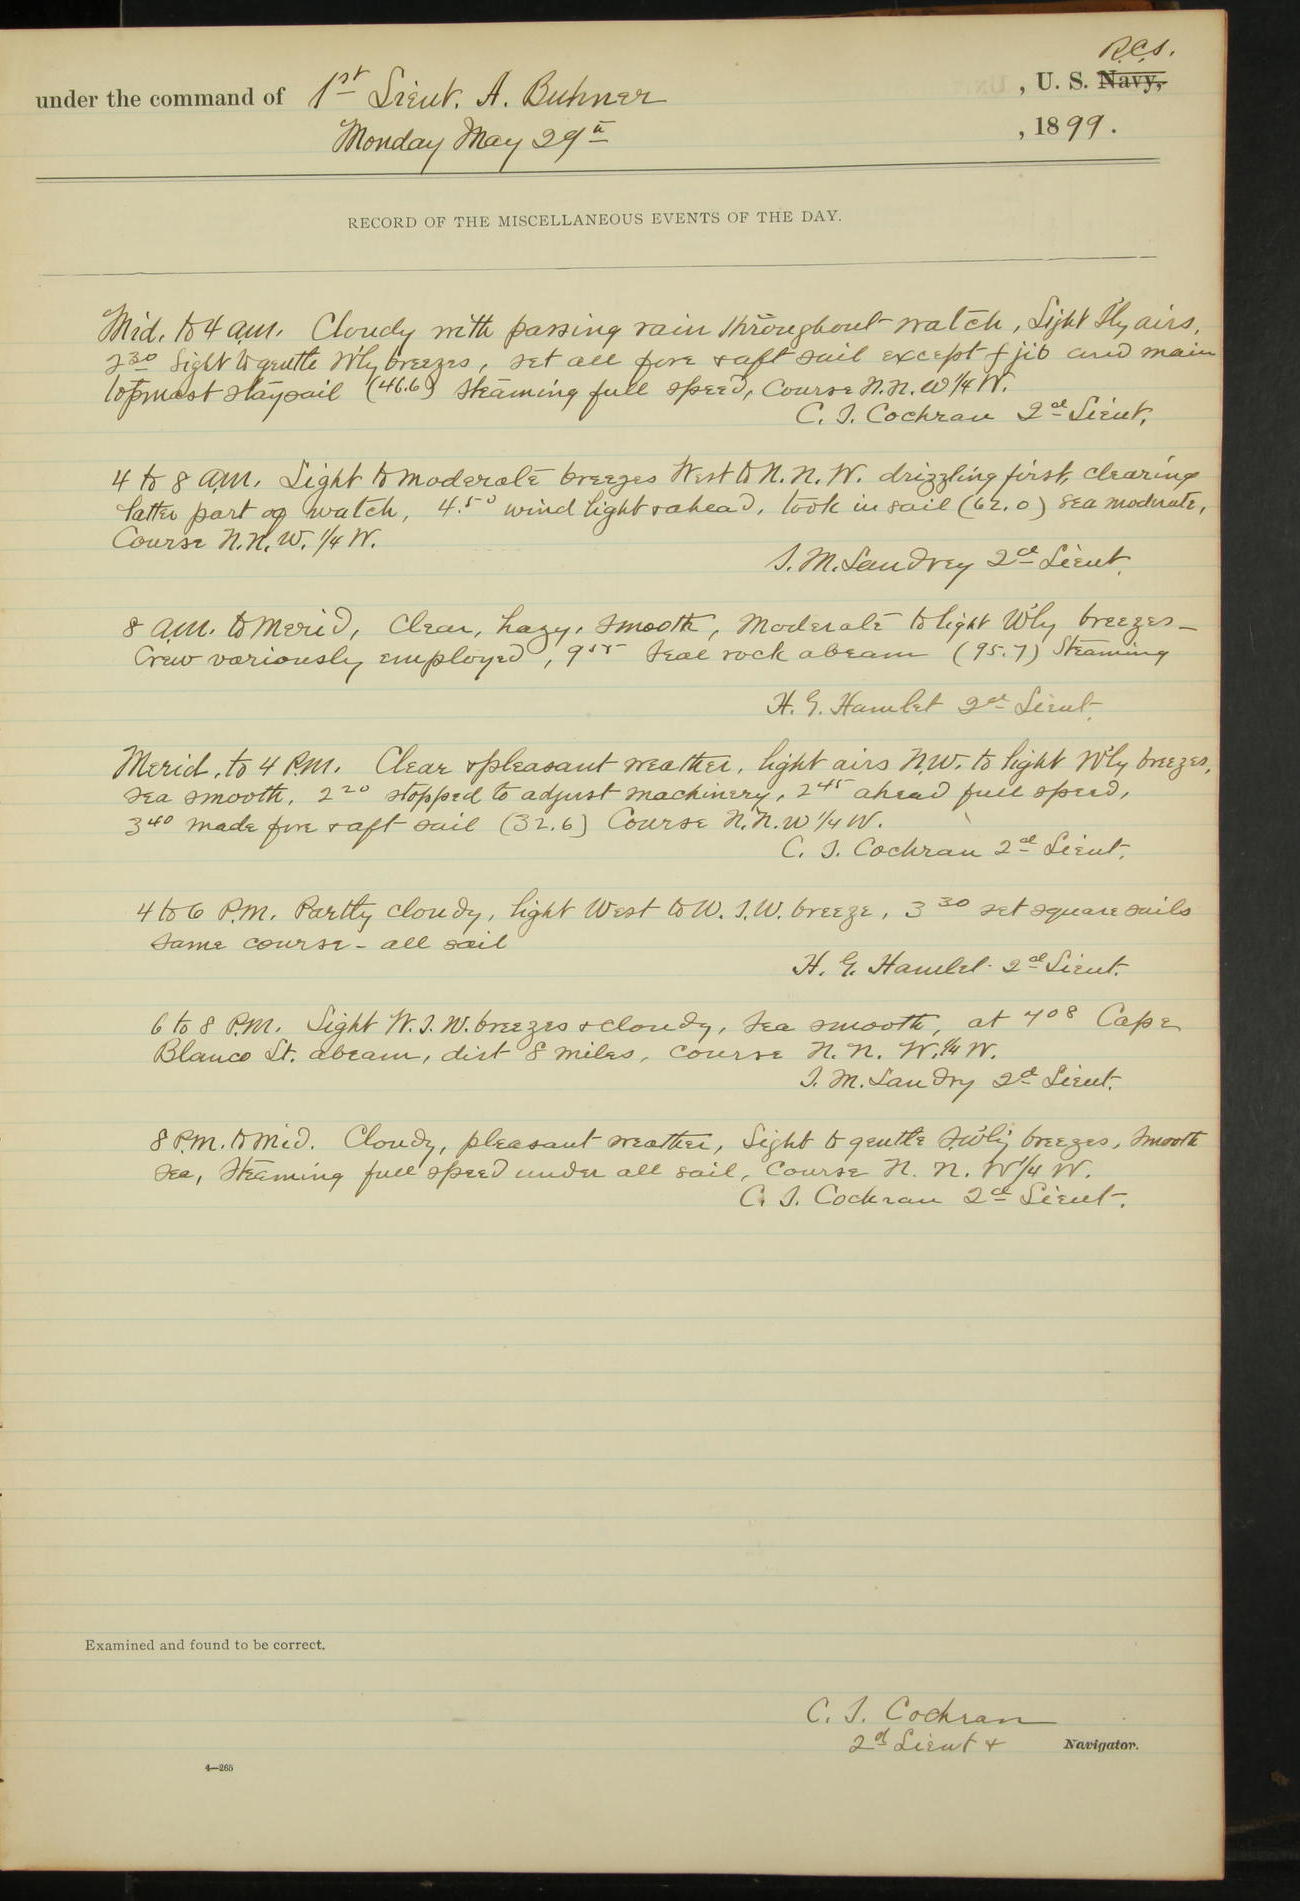 R.C.S.
under the command of 1st Lieut. A. Buhner , U. S. Navy,
Monday May 29th , 1899.
RECORD OF THE MISCELLANEOUS EVENTS OF THE DAY.
Mid. to 4 a.m. Cloudy with passing rain throughout watch, Light S'ly airs,
2 30 Light to gentle W'ly breezes, set all fore & aft sail except f jib and main
topmast staysail (46.6) Steaming full speed, Course N.N.W 1/4 W.
C. S. Cochran 2d Lieut.
4 to 8 a.m. Light to moderate breezes West to N.N.W. drizzling first, clearing
latter part of watch, 4.50 wind light & ahead, took in sail (62.0) sea moderate,
Course N.N.W. 1/4 W.
S. M. Landrey 2d Lieut.
8 a.m. to Merid, Clear, hazy, smooth, Moderate to light W'ly breezes –
Crew variously employed, 9 55 Seal rock abeam (95.7) Steaming
H. G. Hamlet 2d Lieut.
Merid. to 4 P.M. Clear & pleasant weather, light airs N.W. to light W'ly breezes,
sea smooth, 2 20 stopped to adjust machinery, 2 45 ahead full speed,
3 40 made fore & aft sail (32.6) Course N.N.W 1/4 W.
C. S. Cochran 2d Lieut.
4 to 6 P.M. Partly cloudy, light West to W. S.W. breeze, 3 30 set square sails
same course – all sail
H. G. Hamlet 2d Lieut.
6 to 8 P.M. Light W.S.W. breezes & cloudy, Sea smooth, at 7 08 Cape
Blanco Lt. abeam, dist 8 miles, course N. N. W. 1/4 W.
S. M. Landry 2d Lieut.
8 P.M. to Mid. Cloudy, pleasant weather, Light to gentle SW'ly breezes, smooth
sea, Steaming full speed under all sail, Course N. N. W 1/4 W.
C. S. Cochran 2d Lieut.
Examined and found to be correct.
C. S. Cochran
2d Lieut & Navigator.
4—265